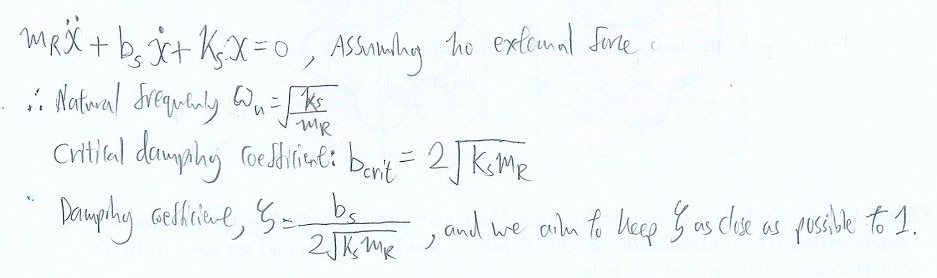 mRẍ + bsẋ + Ksx = 0 , Assuming no external force.
∴ Natural frequency ωn = √(ks/mR)
Critical damping coefficient: bcrit = 2√(KsmR)
Damping coefficient, ζ = bs/(2√(KsmR)) , and we aim to keep ζ as close as possible to 1.